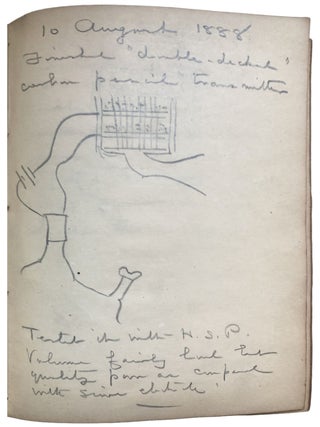 10 August 1888
Finished "double-decked"
carbon pencil transmitter
Tested it with H.S.P.
Volume fairly loud but
quality poor as compared
with